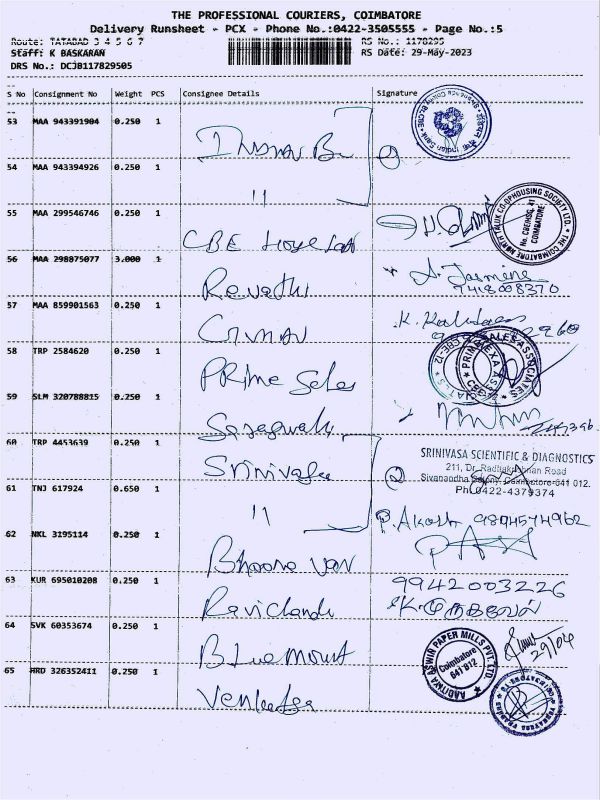 THE PROFESSIONAL COURIERS, COIMBATORE
Delivery Runsheet - PCX - Phone No.:0422-3505555 - Page No.:5
Route: TATABAD 3 4 5 6 7 RS No.: 1178295
Staff: K BASKARAN RS Date: 29-May-2023
DRS No.: DCJB117829505
S No Consignment No Weight PCS Consignee Details Signature
53 MAA 943391904 0.250 1
54 MAA 943394926 0.250 1
"
55 MAA 299546746 0.250 1
CBE
THE COIMBATORE NORTH TALUK CO-OP HOUSING SOCIETY LTD.
COIMBATORE
56 MAA 298875077 3.000 1
Revathi
A. Jasmine
7418008370
57 MAA 859901563 0.250 1
58 TRP 2584620 0.250 1
Prime Sales
PRIMA SALES ASSOCIATES
59 SLM 320788815 0.250 1
60 TRP 4453639 0.250 1
Srinivasa
SRINIVASA SCIENTIFIC & DIAGNOSTICS
211, Dr. Radhakrishnan Road
Sivanandha Colony, Coimbatore-641 012.
Ph.0422-4379374
61 TNJ 617924 0.650 1
"
P. Akash 9894574962
62 NKL 3195114 0.250 1
63 KUR 695010208 0.250 1
9942003226
Ravichand
64 SVK 60353674 0.250 1
Bluemount
AADITYA ASWIN PAPER MILLS PVT. LTD.
Coimbatore
641 012
29/04
65 HRD 326352411 0.250 1